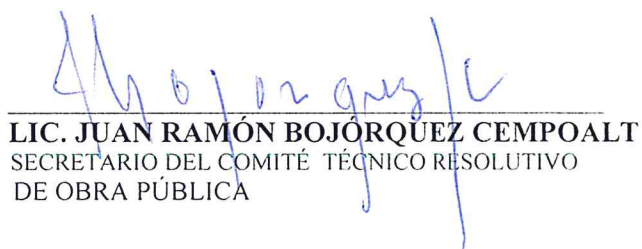 LIC. JUAN RAMÓN BOJÓRQUEZ CEMPOALT
SECRETARIO DEL COMITÉ TÉCNICO RESOLUTIVO
DE OBRA PÚBLICA